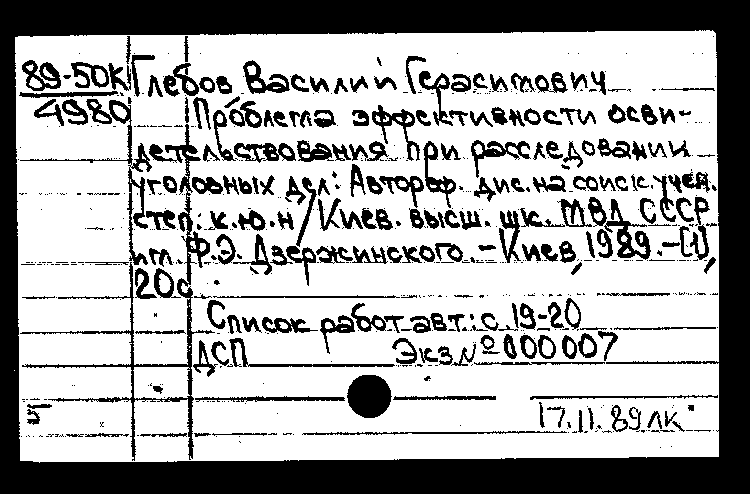 89-50К Глебов Василий Герасимович
4980 Проблема эффективности осви-
детельствования при расследовании
уголовных дел: Автореф. дис. на соиск. учен.
степ. к.ю.н/Киев. высш. шк. МВД СССР
им. Ф.Э. Дзержинского. - Киев, 1989. - [1],
20с.
Список работ авт.: с. 19-20
ДСП Экз. № 000007
17.11.89 ЛК